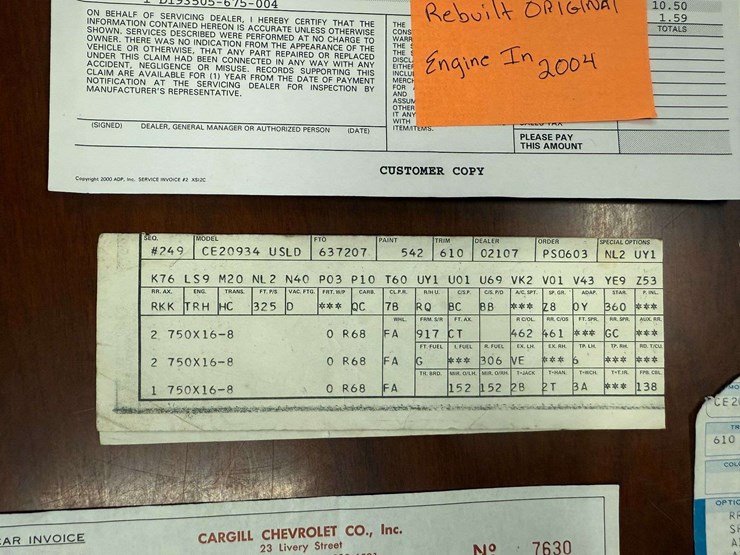 1 D193505-675-004
ON BEHALF OF SERVICING DEALER, I HEREBY CERTIFY THAT THE
INFORMATION CONTAINED HEREON IS ACCURATE UNLESS OTHERWISE
SHOWN. SERVICES DESCRIBED WERE PERFORMED AT NO CHARGE TO
OWNER. THERE WAS NO INDICATION FROM THE APPEARANCE OF THE
VEHICLE OR OTHERWISE, THAT ANY PART REPAIRED OR REPLACED
UNDER THIS CLAIM HAD BEEN CONNECTED IN ANY WAY WITH ANY
ACCIDENT, NEGLIGENCE OR MISUSE. RECORDS SUPPORTING THIS
CLAIM ARE AVAILABLE FOR (1) YEAR FROM THE DATE OF PAYMENT
NOTIFICATION AT THE SERVICING DEALER FOR INSPECTION BY
MANUFACTURER'S REPRESENTATIVE.
(SIGNED) DEALER, GENERAL MANAGER OR AUTHORIZED PERSON (DATE)
THE
CONS
WARR
THE S
THE
DISCL
EITHE
INCLU
MERCH
FOR
AND
ASSUM
OTHER
IT ANY
WITH
ITEM/ITEMS.
Rebuilt ORIGINAL
Engine In 2004
10.50
1.59
TOTALS
PLEASE PAY
THIS AMOUNT
Copyright 2000 ADP, Inc. SERVICE INVOICE #2 XSI2C
CUSTOMER COPY
SEQ. MODEL FTO PAINT TRIM DEALER ORDER SPECIAL OPTIONS
#249 CE20934 USLD 637207 542 610 02107 PS0603 NL2 UY1
K76 LS9 M20 NL2 N40 P03 P10 T60 UY1 U01 U69 VK2 V01 V43 YE9 Z53
RR. AX. ENG. TRANS. FT. P/S VAC. FTG. FRT. W/P CARB. CL.P.R. R/H U. C/S.P. C/S. P/D A/C. SPT. SP. GR. ADAP. STAB. P. INL.
RKK TRH HC 325 D *** QC 7B RQ BC BB *** Z8 OY 360 ***
RHL. FRM. S/R FT. AX. R COIL RR. C/OS FT. SPR. RR. SPR. AUX. RR.
2 750X16-8 0 R68 FA 917 CT 462 461 *** GC ***
FT. FUEL L FUEL R. FUEL EX. LH EX. RH. TP. LH. TP. RH. RD. T/CU.
2 750X16-8 0 R68 FA G *** 306 VE *** 6 *** ***
TR. BRD. MIR. O/LH. MIR. O/RH. T-JACK T-HAN. T-WCH. T-T.IR. FPB. CBL.
1 750X16-8 0 R68 FA 152 152 2B 2T 3A *** 138
MO
CE2
TR
610
COL
OPTIO
AR INVOICE
CARGILL CHEVROLET CO., Inc.
23 Livery Street
No 7630